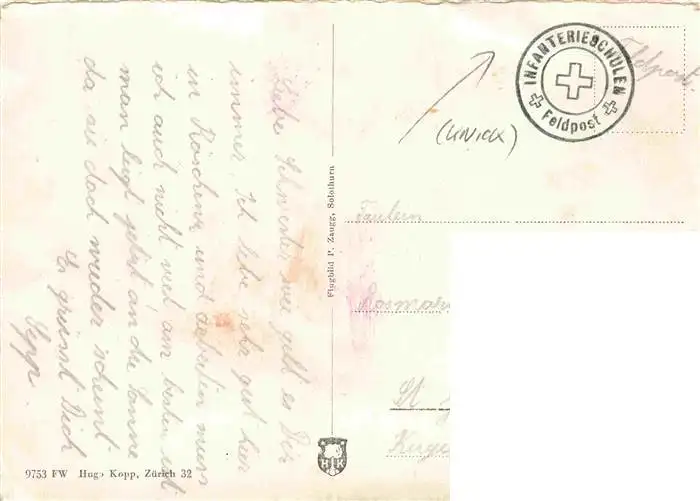 Liebe Schwester wie geht es Dir
immer, ich lebe sehr gut hier
in Röschenz und arbeiten muss
ich auch nicht viel am besten ist
man liegt jetzt an die Sonne
da sie doch wieder scheint
Es grüsst Dich
Sepp.
9753 FW Hugo Kopp, Zürich 32
Flugbild P. Zaugg, Solothurn
HK
INFANTERIESCHULEN
Feldpost
Feldpost.
(KNICK)
Fräulein
St.